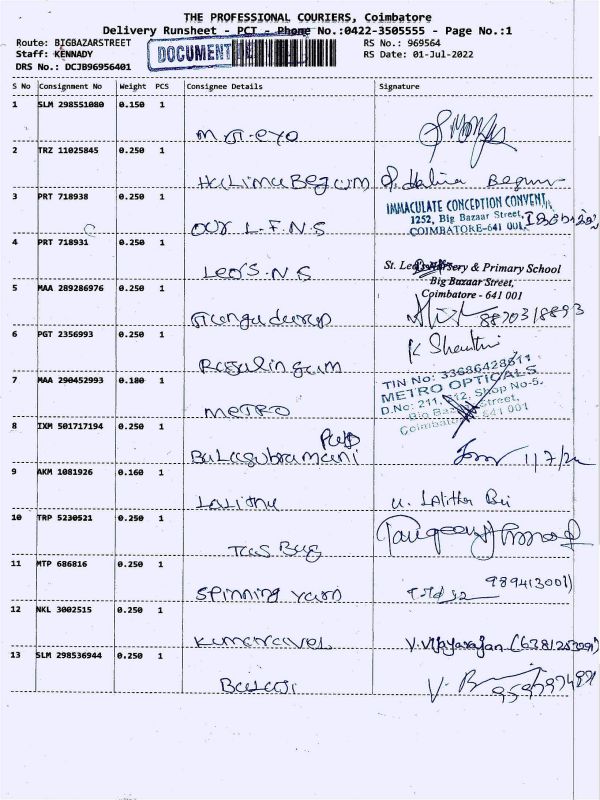 THE PROFESSIONAL COURIERS, Coimbatore
Delivery Runsheet - PCT - Phone No.:0422-3505555 - Page No.:1
Route: BIGBAZARSTREET RS No.: 969564
Staff: KENNADY DOCUMENT RS Date: 01-Jul-2022
DRS No.: DCJB96956401
S No Consignment No Weight PCS Consignee Details Signature
1 SLM 298551080 0.150 1
2 TRZ 11025845 0.250 1
Halima Begam Begum
3 PRT 718938 0.250 1 IMMACULATE CONCEPTION CONVENT,
1252, Big Bazaar Street,
OUR L.F.N.S COIMBATORE-641 001.
4 PRT 718931 0.250 1
Leo's.N.S St. Leo's Nursery & Primary School
Big Bazaar Street,
5 MAA 289286976 0.250 1 Coimbatore - 641 001
8870318893
6 PGT 2356993 0.250 1 K Shanthi
Rasalingam
7 MAA 290452993 0.180 1 TIN No: 33686428611
METRO OPTICALS
METRO D.No: 211, 212, Shop No-5,
Big Bazaar Street,
8 IXM 501717194 0.250 1 Coimbatore - 641 001
Balasubramani 1/7/22
9 AKM 1081926 0.160 1
Lalitha Lalitha
10 TRP 5230521 0.250 1
11 MTP 686816 0.250 1
Spinning yarn
12 NKL 3002515 0.250 1
Kumaravel V.Vijayarajan
13 SLM 298536944 0.250 1
Balaji